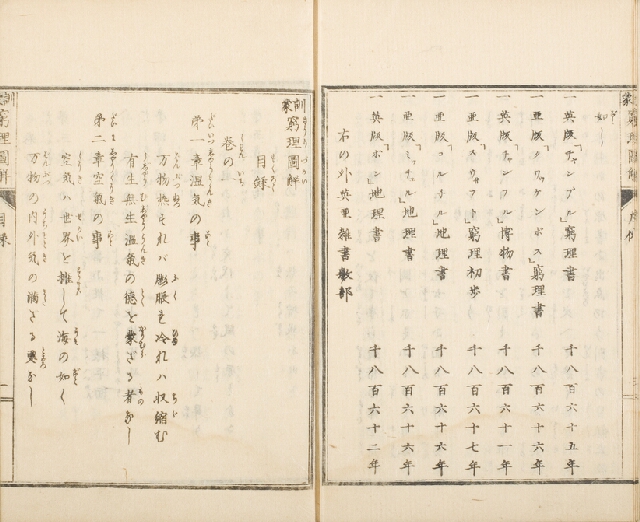 如し
一 英版「チャンブル」窮理書 千八百六十五年
一 亜版「クワッケンボス」窮理書 千八百六十六年
一 英版「チャンブル」博物書 千八百六十一年
一 亜版「スウヰフト」窮理初歩 千八百六十七年
一 亜版「コル子ル」地理書 千八百六十六年
一 亜版「ミッチェル」地理書 千八百六十六年
一 英版「ボン」地理書 千八百六十二年
右の外英亜雑書数部
訓蒙窮理圖解
目録
巻の一
第一章温氣の事
万物熱すれバ膨脹し冷れハ収縮む
有生無生温氣の徳を蒙ざる者なし
第二章空氣の事
空氣ハ世界を擁して海の如く
万物の内外氣の満ざる處なし
訓蒙窮理圖解
目録